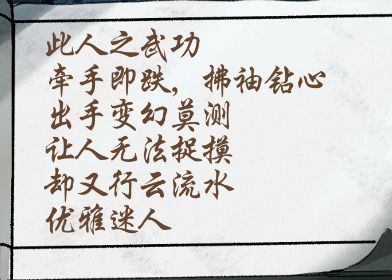 此人之武功
牵手即跌，拂袖钻心
出手变幻莫测
让人无法捉摸
却又行云流水
优雅迷人